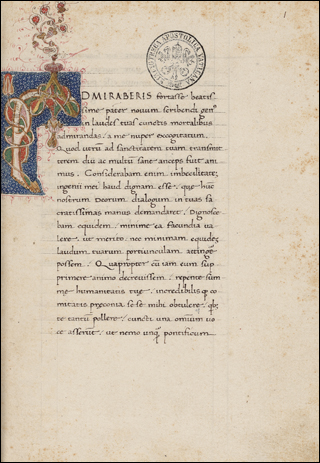 ADMIRABERIS fortasse beatis
sime pater novum scribendi gen⁹
in laudes tuas cunctis mortalibus
admirandas, a me nuper excogitatum.
Quod utrū ad sanctitatem tuam transmit
terem diu ac multū sane anceps fuit ani
mus. Considerabam enim imbecillitatē
ingenii mei haud dignam esse, que huc
nostrum Deorum dialogum in tuas sa
cratissimas manus demandaret. Dignosce
bam equidem minime ea facundia va
lere, ut merito, nec minimam equidē
laudum tuarum portiunculam attingē
possem. Quapropter cū iam eum sup
primere animo decrevissem, repente sum
me humanitatis tue, incredibilisq̄ co
mitatis preconia sese mihi obtulere, qb⁹
te tantū pollere, cuncti una omniū vo
ce asserūt, ut nemo unq̄ pontificum
BIBLIOTHECA APOSTOLICA VATICANA
1